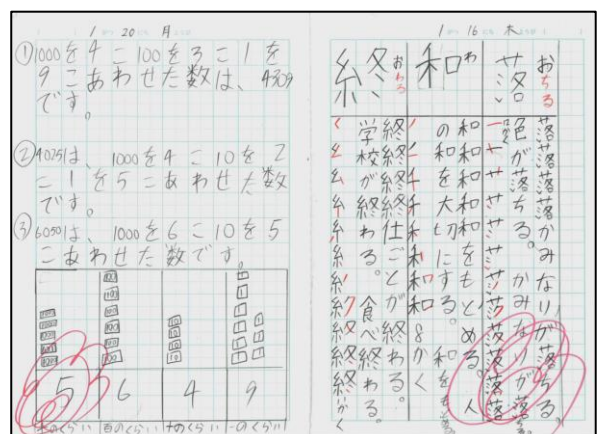 1 がつ 20 にち 月
① 1000を4こ100を3こ1を
9こあわせた数は、4309
です。
② 4025は、1000を4こ10を2
こ1を5こあわせた数
です。
③ 6050は、1000を6こ10を5
こあわせた数です。
5 6 4 9
千のくらい 百のくらい 十のくらい 一のくらい
1 16 木
おちる
落
落落落落かみなりが落ちる。
色が落ちる。かみなりが落ちる
わ
和
和和和和をもとめる。人
の和を大切にする。和を
和和 8かく
おわる
終
終終終仕ごとが終わる。
学校が終わる。食べ終わる。